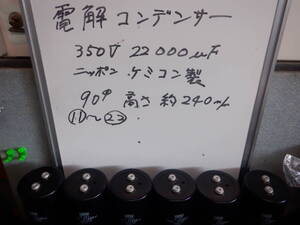 電解コンデンサー
350V 22000μF
ニッポン.ケミコン製
90φ 高さ 約240m/m
⑪〜㉒